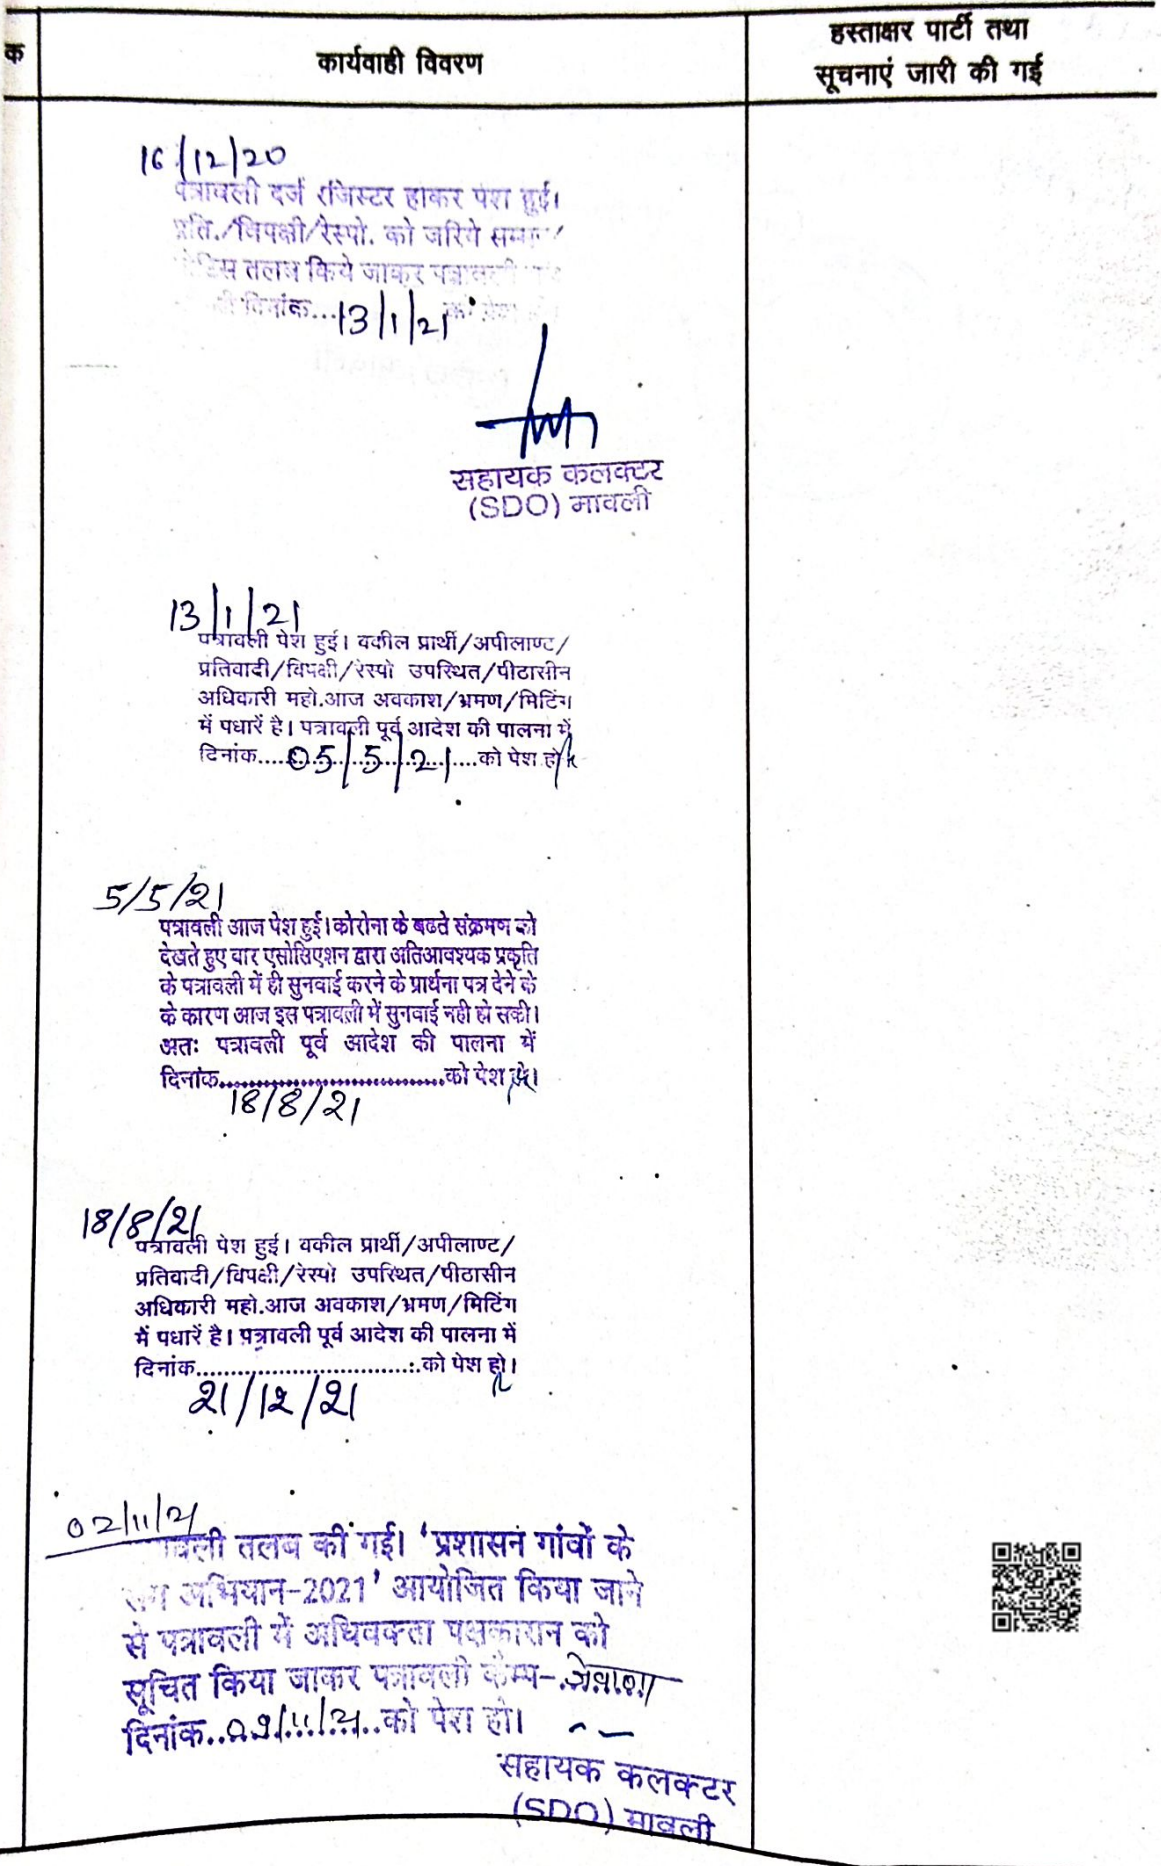 क
कार्यवाही विवरण
हस्ताक्षर पार्टी तथा
सूचनाएं जारी की गई
16/12/20
पत्रावली दर्ज रजिस्टर होकर पेश हुई।
प्रति./विपक्षी/रेस्पो. को जरिये सम्मन/
नोटिस तलब किये जाकर पत्रावली
दिनांक...13/1/21 को पेश
सहायक कलक्टर
(SDO) मावली
13/1/21
पत्रावली पेश हुई। वकील प्रार्थी/अपीलाण्ट/
प्रतिवादी/विपक्षी/रेस्पो उपस्थित/पीठासीन
अधिकारी महो.आज अवकाश/भ्रमण/मिटिंग
में पधारें है। पत्रावली पूर्व आदेश की पालना में
दिनांक.....05/5/21....को पेश हो
5/5/21
पत्रावली आज पेश हुई।कोरोना के बढते संक्रमण को
देखते हुए बार एसोसिएशन द्वारा अतिआवश्यक प्रकृति
के पत्रावली में ही सुनवाई करने के प्रार्थना पत्र देने के
के कारण आज इस पत्रावली में सुनवाई नही हो सकी।
अतः पत्रावली पूर्व आदेश की पालना में
दिनांक..............................को पेश हो।
18/8/21
18/8/21
पत्रावली पेश हुई। वकील प्रार्थी/अपीलाण्ट/
प्रतिवादी/विपक्षी/रेस्पो उपस्थित/पीठासीन
अधिकारी महो.आज अवकाश/भ्रमण/मिटिंग
में पधारें है। पत्रावली पूर्व आदेश की पालना में
दिनांक................................को पेश हो।
21/12/21
02/11/21
पत्रावली तलब की गई। 'प्रशासन गांवों के
संग अभियान-2021' आयोजित किया जाने
से पत्रावली में अधिवक्ता पक्षकारान को
सूचित किया जाकर पत्रावली कैम्प-
दिनांक..09/11/21..को पेश हो।
सहायक कलक्टर
(SDO) मावली